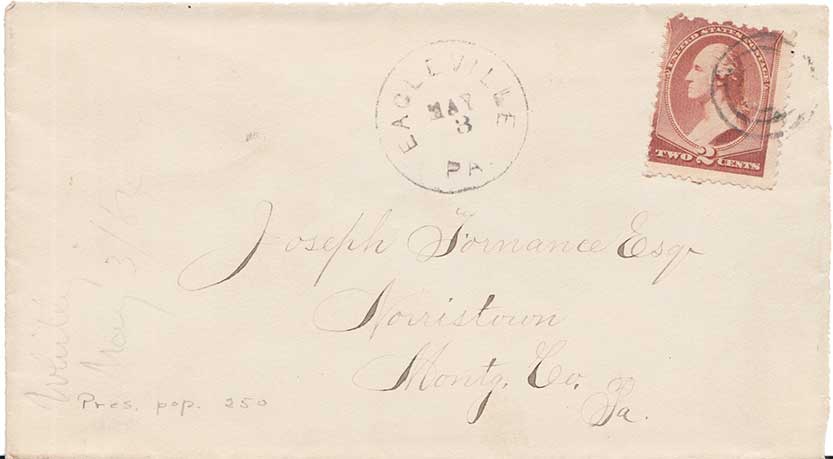 EAGLEVILLE
MAY
3
PA
UNITED STATES POSTAGE
TWO 2 CENTS
Joseph Fornance Esqr
Norristown
Montg. Co.
Pa.
May 3/
Pres. pop. 250